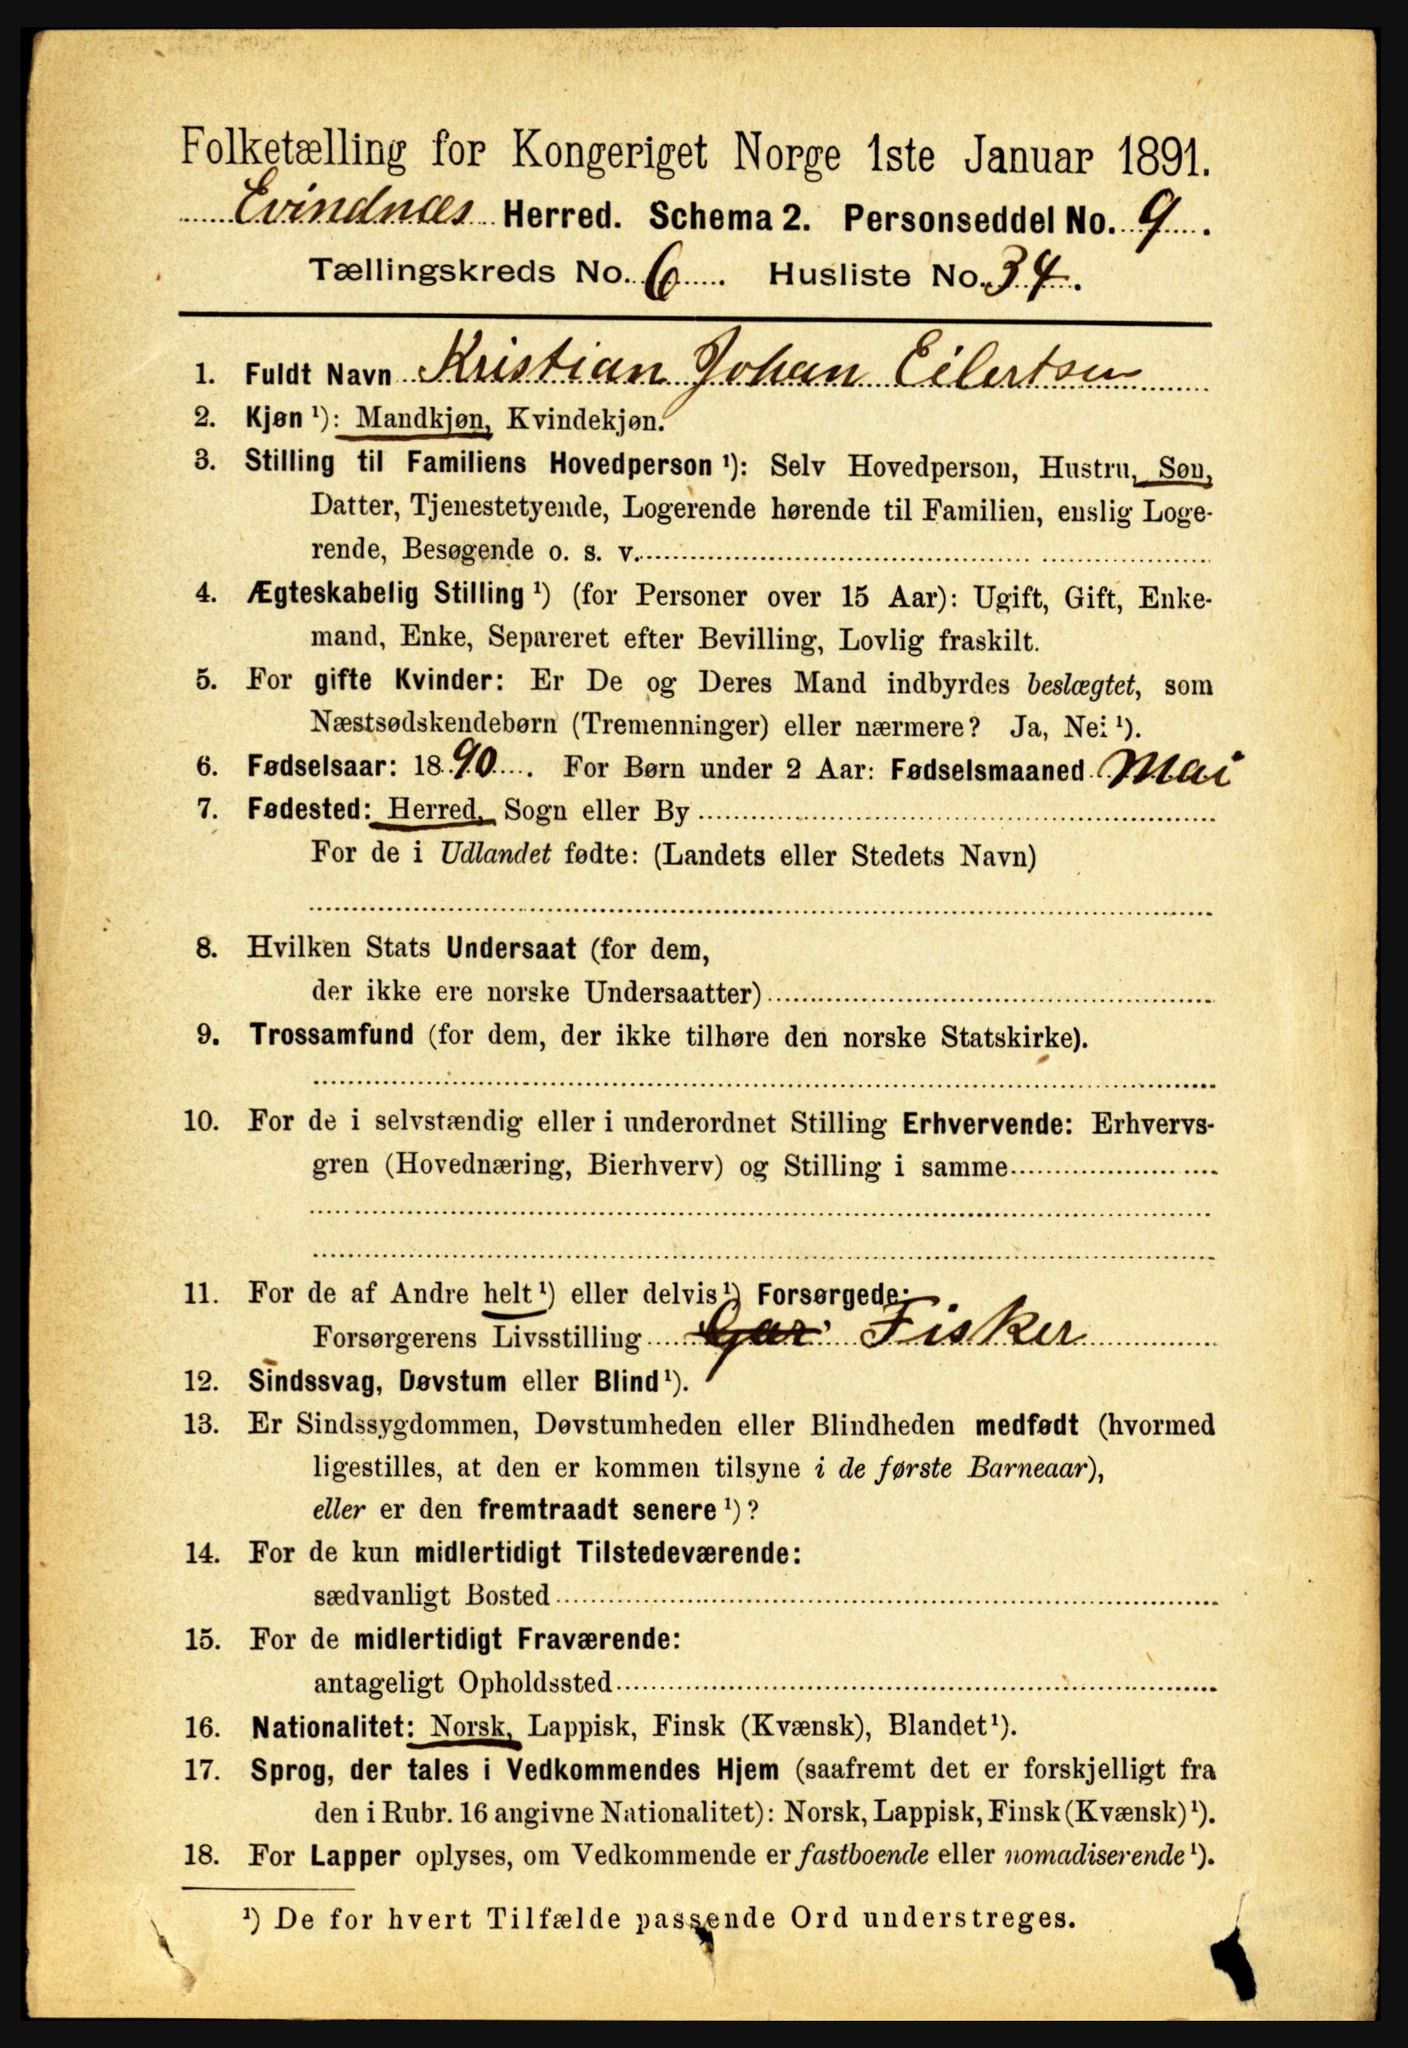 Folketælling for Kongeriget Norge 1ste Januar 1891.
Evindnæs Herred. Schema 2. Personseddel No. 9.
Tællingskreds No. 6. Husliste No. 34.
1. Fuldt Navn Kristian Johan Eilertsen
2. Kjøn ¹): Mandkjøn, Kvindekjøn.
3. Stilling til Familiens Hovedperson ¹): Selv Hovedperson, Hustru, Søn,
Datter, Tjenestetyende, Logerende hørende til Familien, enslig Loge-
rende, Besøgende o. s. v.
4. Ægteskabelig Stilling ¹) (for Personer over 15 Aar): Ugift, Gift, Enke-
mand, Enke, Separeret efter Bevilling, Lovlig fraskilt.
5. For gifte Kvinder: Er De og Deres Mand indbyrdes beslægtet, som
Næstsødskendebørn (Tremenninger) eller nærmere? Ja, Nei ¹).
6. Fødselsaar: 1890. For Børn under 2 Aar: Fødselsmaaned Mai
7. Fødested: Herred, Sogn eller By
For de i Udlandet fødte: (Landets eller Stedets Navn)
8. Hvilken Stats Undersaat (for dem,
der ikke ere norske Undersaatter)
9. Trossamfund (for dem, der ikke tilhøre den norske Statskirke).
10. For de i selvstændig eller i underordnet Stilling Erhvervende: Erhvervs-
gren (Hovednæring, Bierhverv) og Stilling i samme
11. For de af Andre helt ¹) eller delvis ¹) Forsørgede:
Forsørgerens Livsstilling Gar Fisker
12. Sindssvag, Døvstum eller Blind ¹).
13. Er Sindssygdommen, Døvstumheden eller Blindheden medfødt (hvormed
ligestilles, at den er kommen tilsyne i de første Barneaar),
eller er den fremtraadt senere ¹)?
14. For de kun midlertidigt Tilstedeværende:
sædvanligt Bosted
15. For de midlertidigt Fraværende:
antageligt Opholdssted
16. Nationalitet: Norsk, Lappisk, Finsk (Kvænsk), Blandet ¹).
17. Sprog, der tales i Vedkommendes Hjem (saafremt det er forskjelligt fra
den i Rubr. 16 angivne Nationalitet): Norsk, Lappisk, Finsk (Kvænsk) ¹).
18. For Lapper oplyses, om Vedkommende er fastboende eller nomadiserende ¹).
¹) De for hvert Tilfælde passende Ord understreges.